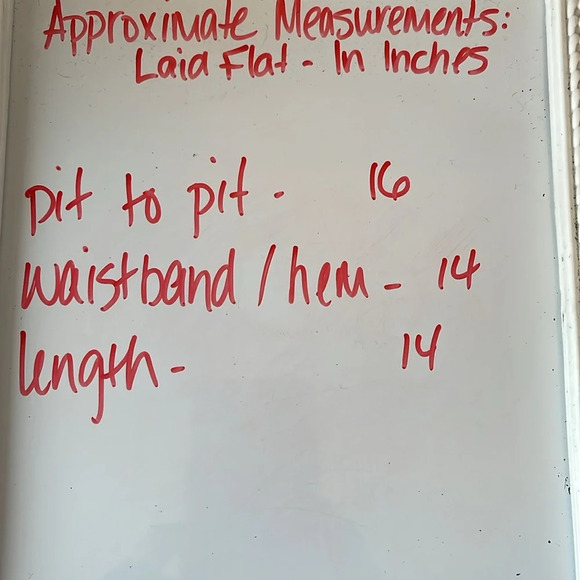 Approximate Measurements:
Laid Flat - In Inches
pit to pit - 16
waistband / hem - 14
length - 14